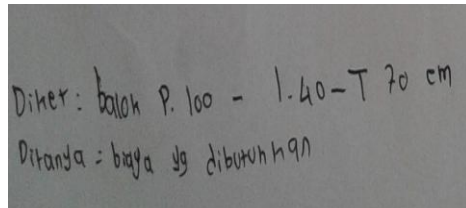 Diket : balok P. 100 - l. 40 - T 70 cm
Ditanya : biaya yg dibutuhkan